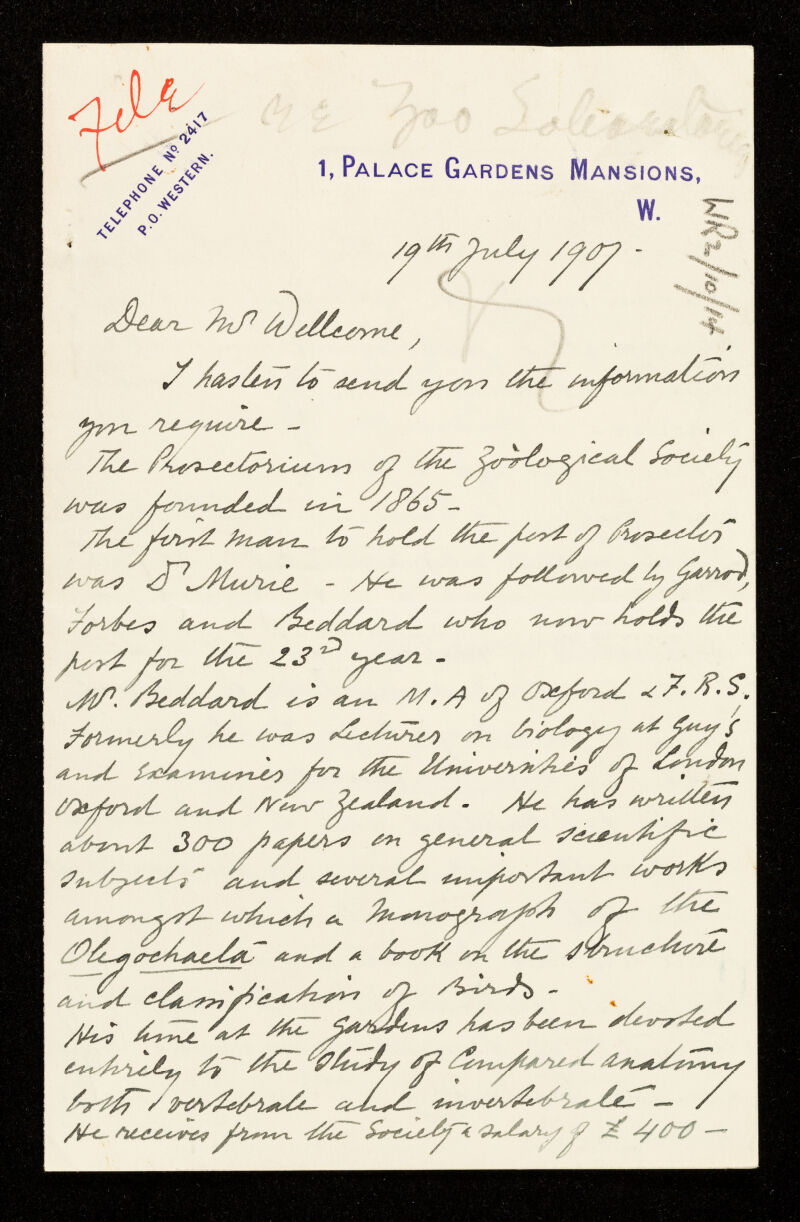 File
re Zoo Laboratories
TELEPHONE Nº 2417
P.O. WESTERN.
1, PALACE GARDENS MANSIONS,
W.
WR2/10/14
19th July 1907 -
Dear Mr Wellcome,
I hasten to send you the information
you require -
The Prosectorium of the Zoological Society
was founded in 1865 -
The first man to hold the post of Prosector
was Dr Murie - He was followed by Garrod,
Forbes and Beddard who now holds the
post for the 23rd year -
Mr. Beddard is an M.A of Oxford & F.R.S.
Formerly he was Lecturer on biology at Guy's
and Examiner for the Universities of London
Oxford and New Zealand. He has written
about 300 papers on general scientific
subjects and several important works
amongst which a Monograph of the
Oligochaeta and a book on the structure
and classification of Birds -
His time at the Gardens has been devoted
entirely to the study of Compared anatomy
both vertebrate and invertebrate -
He receives from the Society a salary of £ 400 -